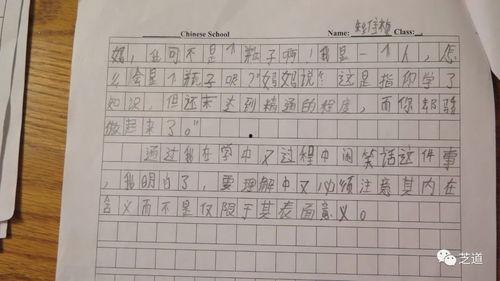 Chinese School Name: Class:
妈，我可不是个瓶子啊！我是一个人，怎
么会是个瓶子呢？”妈妈说“这是指你学了
知识，但还未达到精通的程度，而你却骄
傲起来了。”
通过我在学中文过程中闹笑话这件事
，我明白了，要理解中文必须注意其内在
含义而不是仅限于其表面意义。
芝道